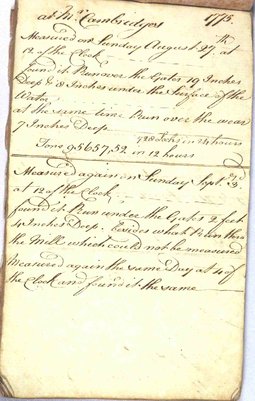 at Mr. Cambridges 1775.
Measured on Sunday August 27th at
12 of the Clock
found it Run over the Gates 19 Inches
Deep & 8 Inches under the Surface of the
Water
at the same time Run over the wear
7 Inches Deep
in 24 hours
Tons 95657,52 in 12 hours
Measured again on Sunday Sept. 3d
at 12 of the Clock
found it Run under the Gates 2 feet
4 Inches Deep, besides what Run thro
the Mill which could not be measured
Measured again the same Day at 4 of
the Clock and found it the same